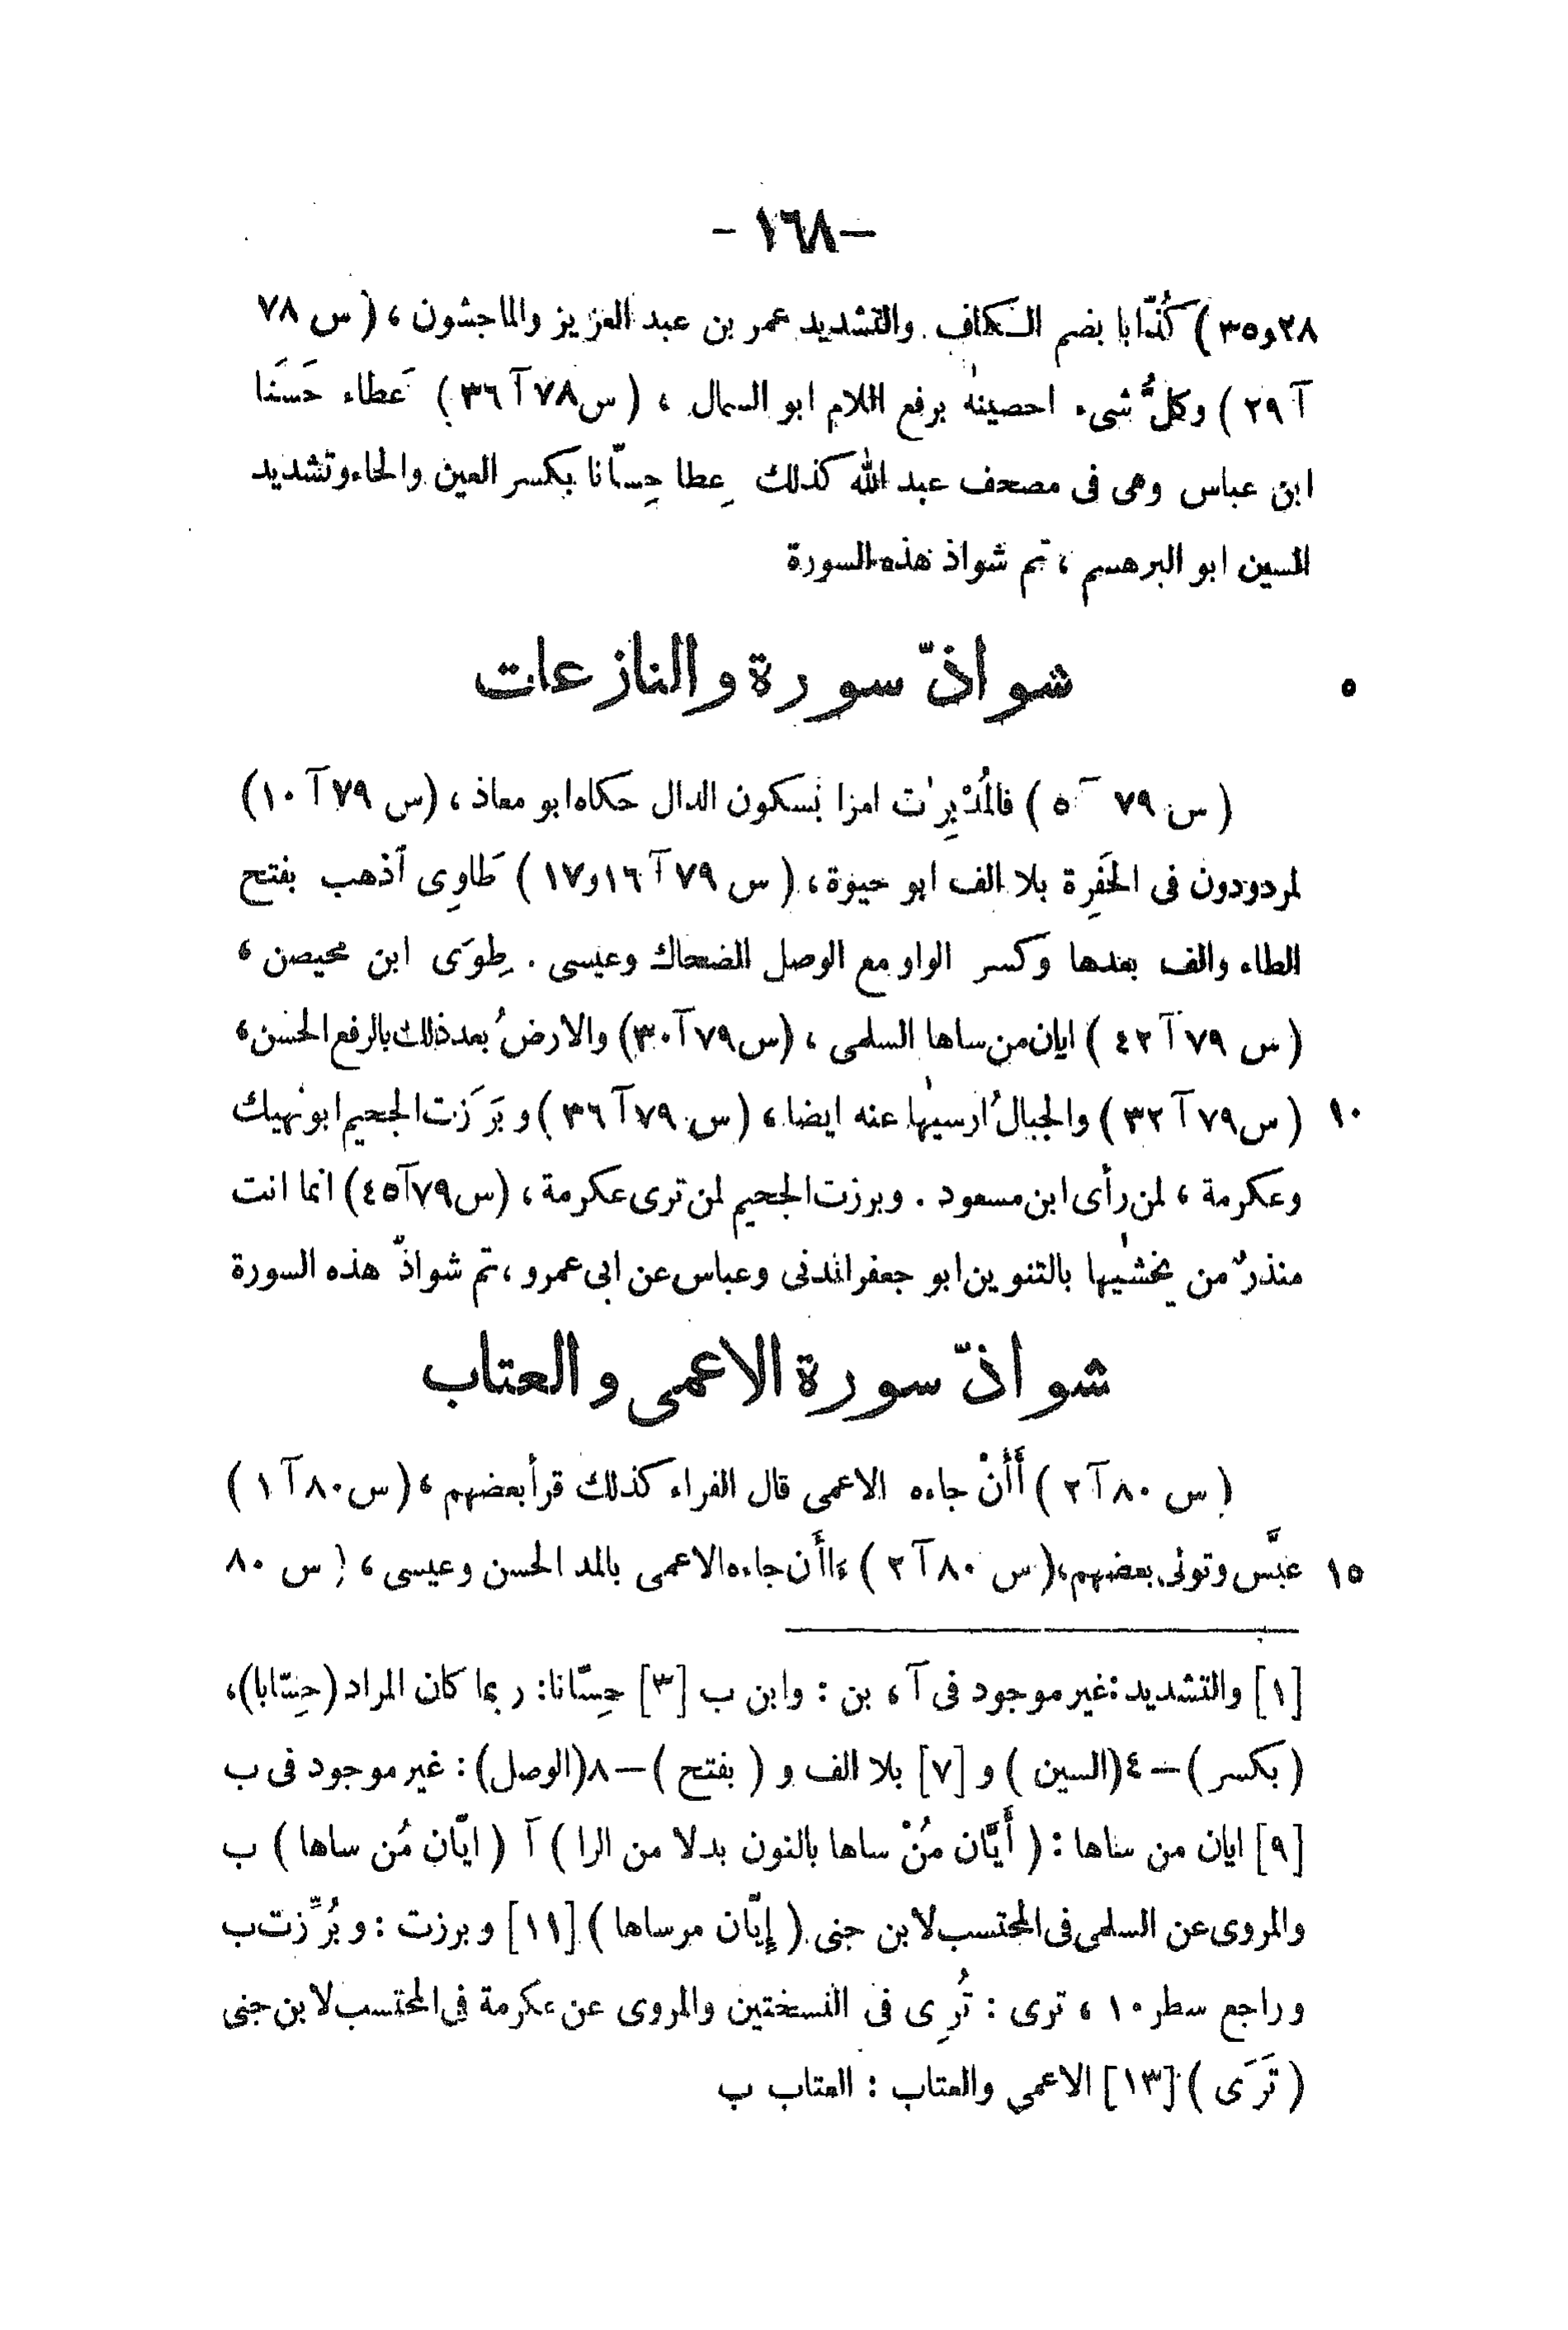 — ١٦٨ —
٢٨و٣٥ ) كُذّابا بضم الكاف والتشديد عمر بن عبد العزيز والماجشون ، ( س ٧٨
آ ٢٩ ) وكلُّ شىء احصينٰه برفع اللام ابو السمال ، ( س٧٨آ٣٦ ) عَطاء حَسَنَا
ابن عباس وهى فى مصحف عبد الله كذلك عِطا حِسّانا بكسر العين والحاء وتشديد
السين ابو البرهسم ، تم شواذ هذه السورة
شواذّ سورة والنازعات
٥
( س ٧٩ آ ٥ ) فالمُدْبِرٰت امرا بسكون الدال حكاه ابو معاذ ، (س ٧٩ آ ١٠)
لمردودون فى الحَفِرة بلا الف ابو حيوة ، ( س ٧٩ آ ١٦و١٧ ) طَاوِى آذهب بفتح
الطاء والف بعدها وكسر الواو مع الوصل الضحاك وعيسى . طِوَى ابن محيصن ،
( س ٧٩ آ ٤٢ ) ايان من ساها السلمى ، (س٧٩آ٣٠) والارضُ بعد ذلك بالرفع الحسن ،
١٠ ( س٧٩آ ٣٢ ) والجبالُ ارسيٰها عنه ايضا ، ( س ٧٩آ٣٦ ) وبَرَزت الجحيم ابو نهيك
وعكرمة ، لمن رأى ابن مسعود . وبرزت الجحيم لمن ترى عكرمة ، (س٧٩آ٤٥) انما انت
منذرٌ من يخشيٰها بالتنوين ابو جعفر المدنى وعباس عن ابى عمرو ، تم شواذّ هذه السورة
شواذّ سورة الاعمى والعتاب
( س ٨٠آ ٢ ) أَأَنْ جاءه الاعمى قال الفراء كذلك قرأ بعضهم ، ( س٨٠آ ١ )
١٥ عبَّس وتولى بعضهم ، ( س ٨٠ آ ٢ ) ءَاأَن جاءه الاعمى بالمد الحسن وعيسى ، ( س ٨٠
[١] والتشديد : غير موجود فى آ ، بن : وابن ب [٣] حِسّانا : ربما كان المراد (حِسّابا) ،
( بكسر ) — ٤(السين ) و [٧] بلا الف و ( بفتح ) — ٨(الوصل) : غير موجود فى ب
[٩] ايان من ساها : ( أَيَّان مُنْ ساها بالنون بدلا من الرا ) آ ( ايّان مُن ساها ) ب
والمروى عن السلمى فى المحتسب لابن جنى ( إِيّان مرساها ) [١١] وبرزت : وبُرِّزت ب
وراجع سطر ١٠ ، ترى : تُرِى فى النسختين والمروى عن عكرمة فى المحتسب لابن جنى
( تَرَى ) [١٣] الاعمى والعتاب : العتاب ب